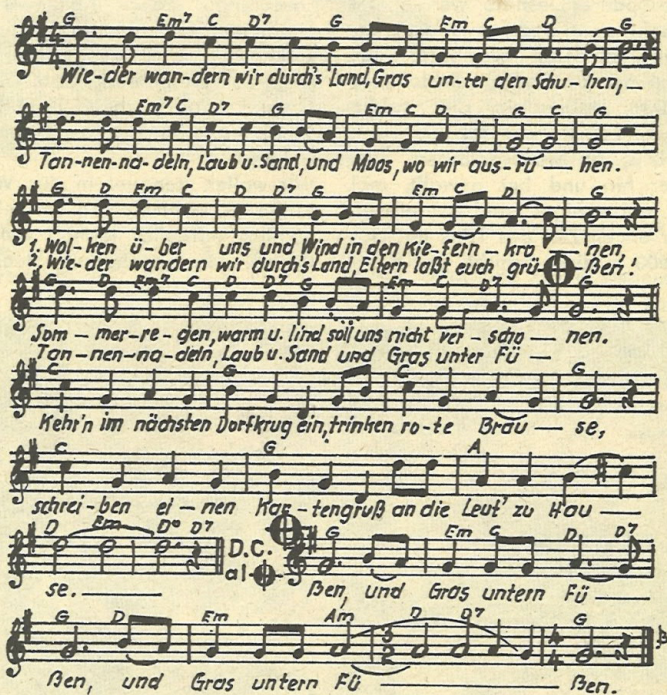 G Em7 C D7 G Em C D G
Wie-der wan-dern wir durch's Land, Gras un-ter den Schu-hen, —
Em7 C D7 G Em C D G C G
Tan-nen-na-deln, Laub u. Sand, und Moos, wo wir aus-ru — hen.
G D Em C D D7 G Em C D G
1. Wol-ken ü-ber uns und Wind in den Kie-fern-kro — nen,
2. Wie-der wandern wir durch's Land, Eltern laßt euch grü — ßen!
G D Em7 C D D7 G Em C D7 G
Som — mer-re-gen, warm u. lind soll uns nicht ver-scho — nen.
Tan-nen-na-deln, Laub u. Sand und Gras unter Fü —
C G C G
Kehr'n im nächsten Dorfkrug ein, trinken ro-te Brau — se,
C G A
schrei-ben ei-nen Kar-tengruß an die Leut' zu Hau —
D Em D° D7 D.C. G Em C D D7
al-
se. ——— ßen, und Gras untern Fü ——
G D Em Am D D7 G
ßen, und Gras untern Fü ——— ßen.